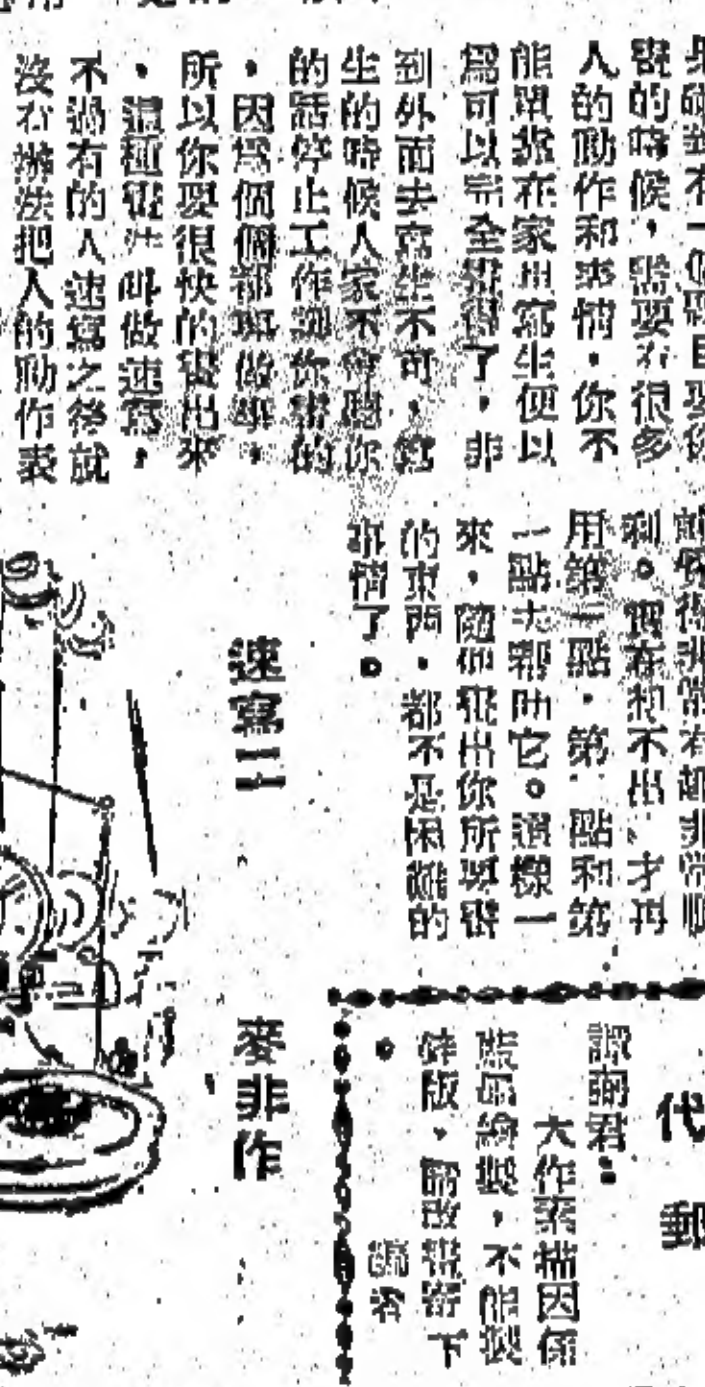 畫的時候，需要有很多
人的動作和表情，你不
能單靠在家里寫生便以
爲可以完全獲得了，非
到外面去寫生不可，寫
生的時候人家不會聽你
的話停止工作讓你畫的
，因爲個個都要做事，
所以你要很快的畫出來
，這種畫法叫做速寫，
不過有的人速寫之後就
沒有辦法把人的動作表
利。現在想不出，才再
用第一點，第 點和第
一點去幫助它。這樣一
來，隨你畫出你所要畫
的東西，都不是困難的
事情了。
速寫二
麥非作
代郵
君：
大作素描因係
藍 繪製，不能製
鋅版，請改 寄下
。 編者